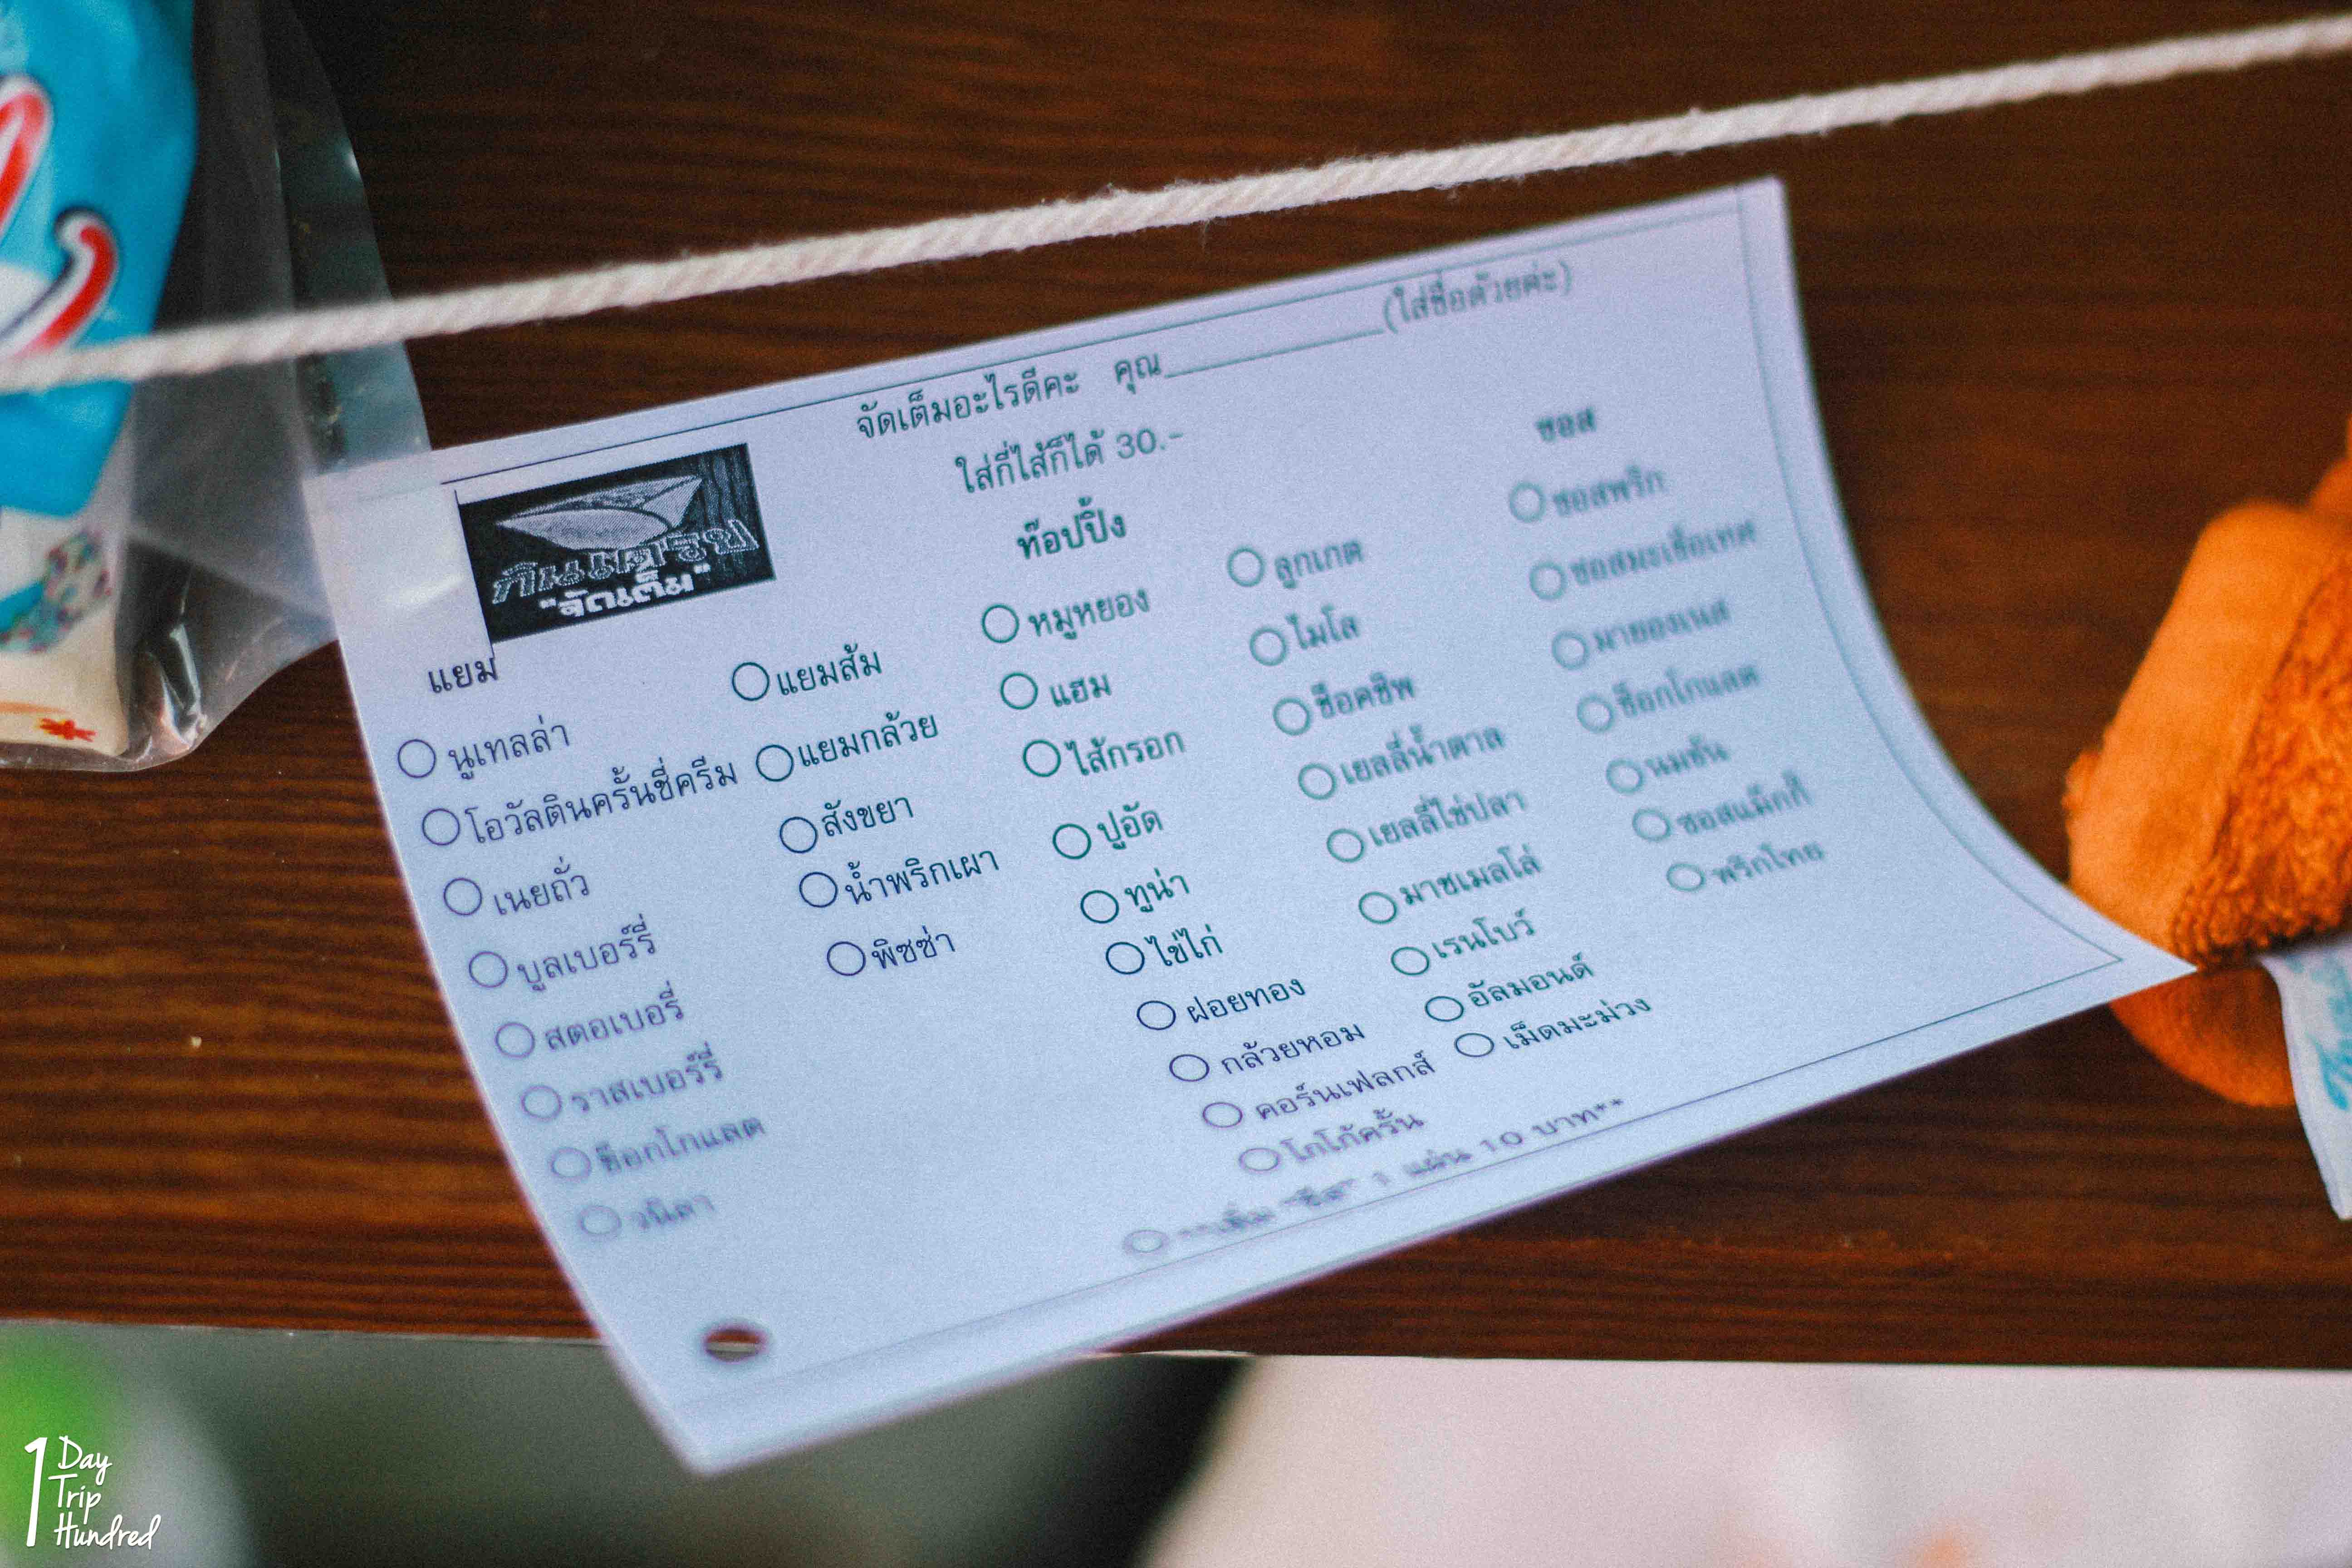 จัดเต็มอะไรดีคะ คุณ____________(ใส่ชื่อด้วยค่ะ)
ใส่กี่ไส้ก็ได้ 30.-
กินเครป
"จัดเต็ม"
แยม
นูเทลล่า
โอวัลตินครั้นชี่ครีม
เนยถั่ว
บูลเบอร์รี่
สตอเบอรี่
ราสเบอร์รี่
ช็อกโกแลต
วนิลา
แยมส้ม
แยมกล้วย
สังขยา
น้ำพริกเผา
พิซซ่า
ท๊อปปิ้ง
หมูหยอง
แฮม
ไส้กรอก
ปูอัด
ทูน่า
ไข่ไก่
ฝอยทอง
กล้วยหอม
คอร์นเฟลกส์
โกโก้ครั้น
ลูกเกด
ไมโล
ช็อคชิพ
เยลลี่น้ำตาล
เยลลี่ไข่ปลา
มาชเมลโล่
เรนโบว์
อัลมอนด์
เม็ดมะม่วง
ซอส
ซอสพริก
ซอสมะเขือเทศ
มายองเนส
ช็อกโกแลต
นมข้น
ซอสแม็กกี้
พริกไทย
**เพิ่ม "ชีส" 1 แผ่น 10 บาท**
1 Day
Trip
Hundred